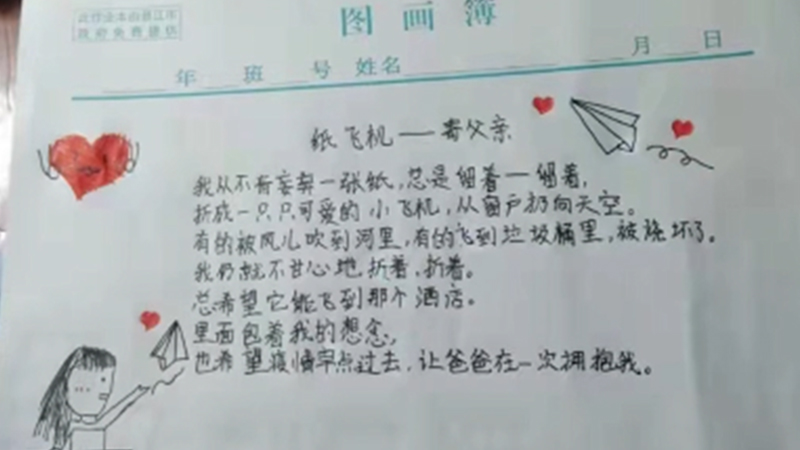 图画簿
年 班 号 姓名 月 日
纸飞机——寄父亲
我从不肯妄弃一张纸,总是留着—留着,
折成一只只可爱的小飞机,从窗户扔向天空。
有的被风儿吹到河里,有的飞到垃圾桶里,被烧坏了。
我仍就不甘心地折着,折着。
总希望它能飞到那个酒店。
里面包着我的想念,
也希望疫情早点过去,让爸爸在一次拥抱我。